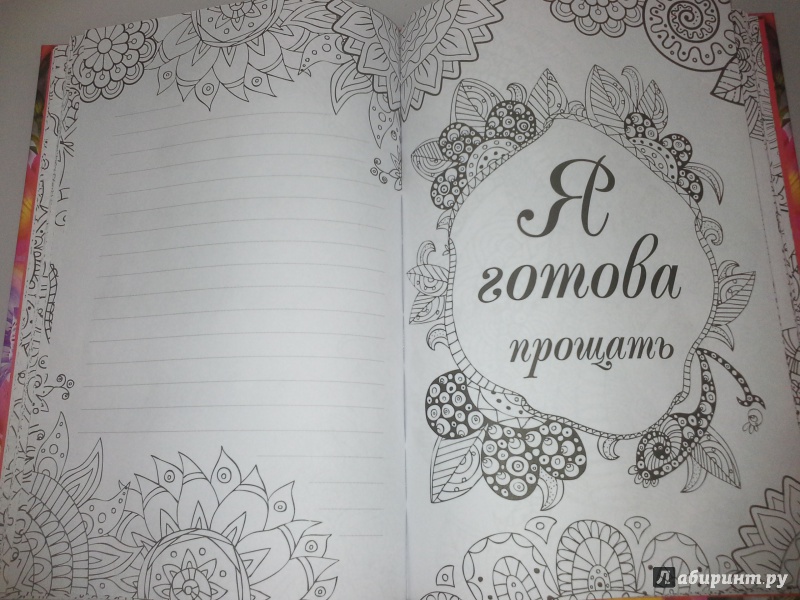 Я
готова
прощать
Лабиринт.ру